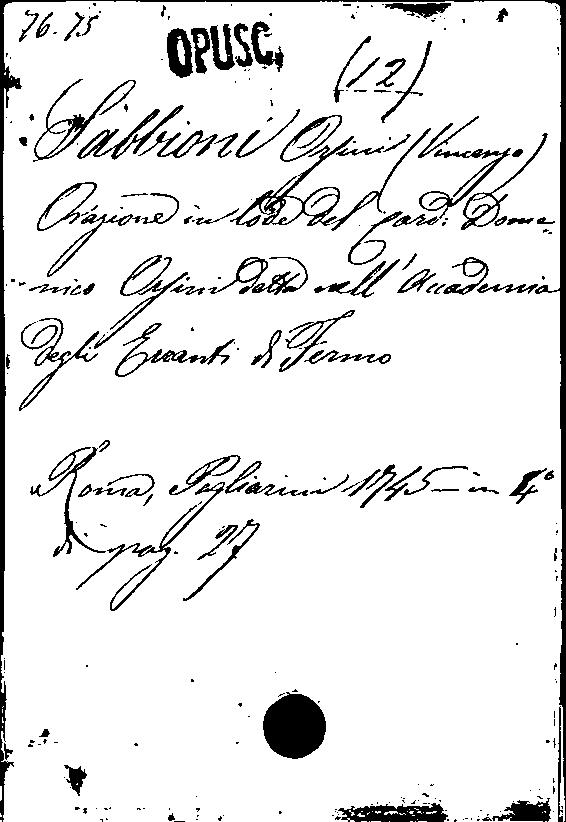 76.75
OPUSC.
(12)
Sabbioni Orsini (Vincenzo)
Orazione in lode del Card: Dome-
-nico Orsini detta nell'Accademia
degli Erranti di Fermo
Roma, Pagliarini 1745 in 4°
di pag. 27